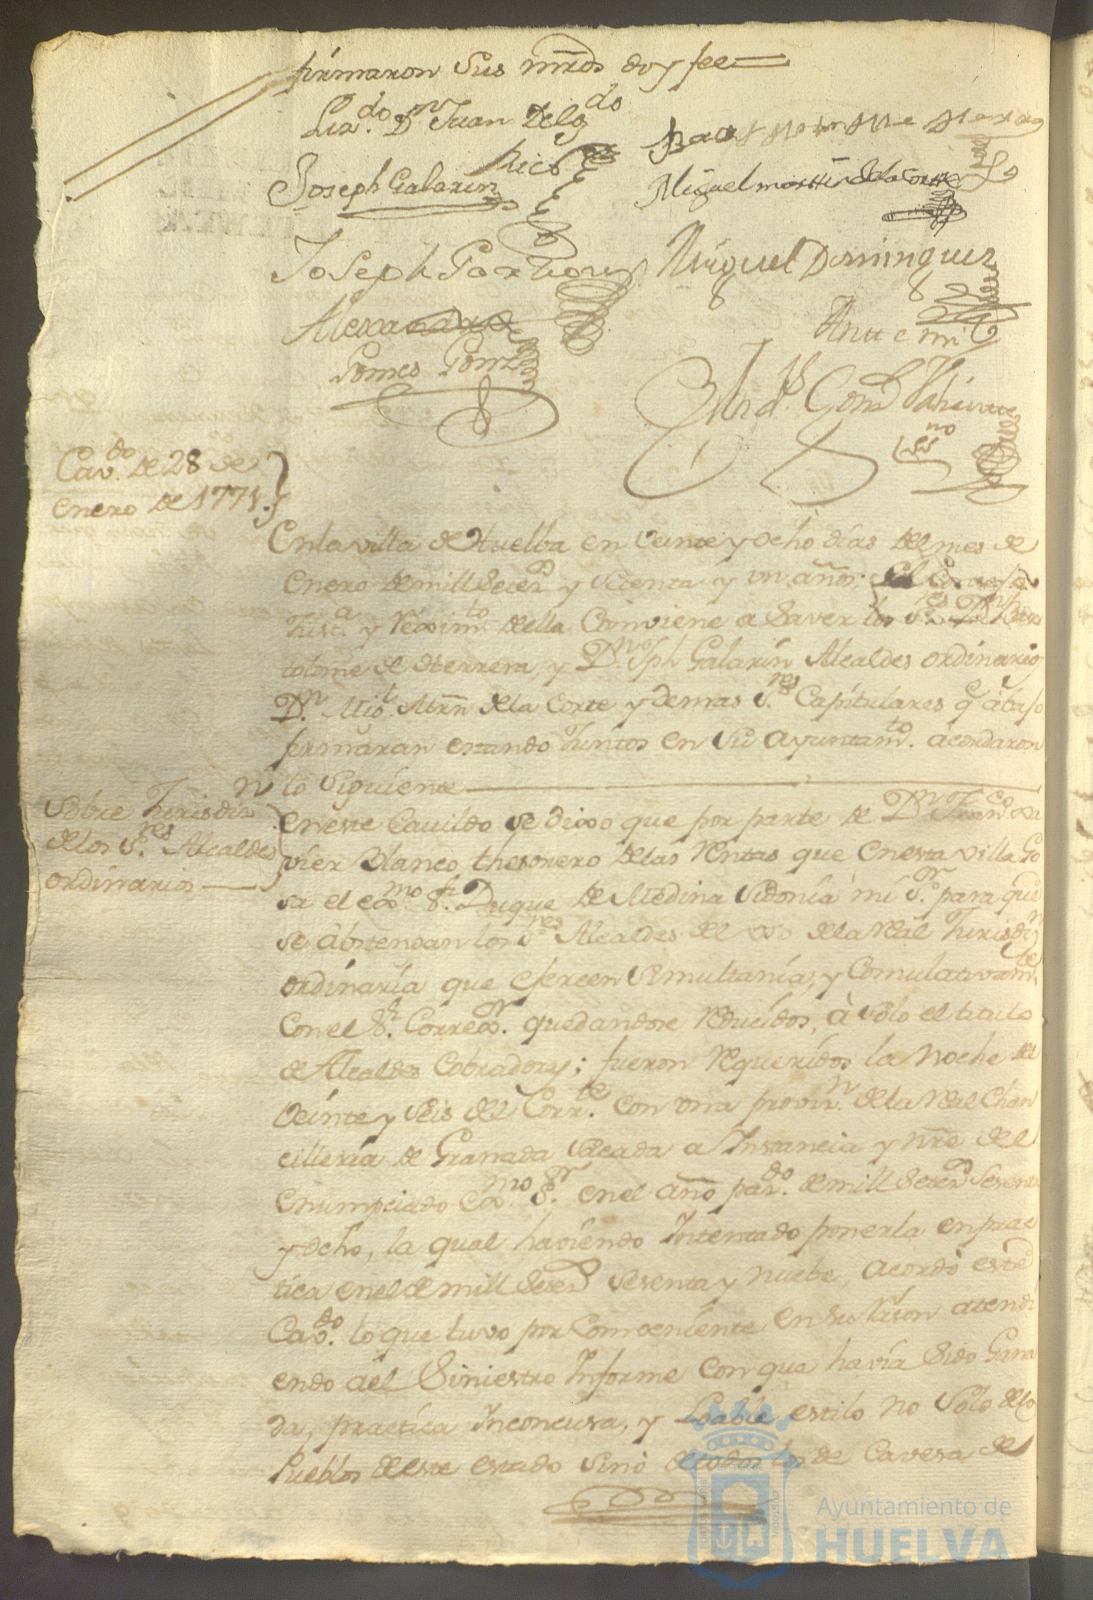 firmaron sus mrds doy fee
Lizdo. Dn Juan Delgdo
Rico
Joseph Galarin
Miguel martin de la Corte
Joseph
Miguel Dominguez
Alexandro
Gomes Gonz
Ante mi
Cavdo. de 28 de
enero de 1771.
En la villa de Huelba en veinte y ocho dias del mes de
enero de mill setezs y setenta y un años; el Consejo
Justa. y reximto. della Conviene a saver los Sres. Dn Bar
tolome de Herrera, y Dn. Jph Galarin Alcaldes ordinarios
Dn. Migl Mrñ de la Corte y demas Sres. Capitulares q abajo
firmaran estando Juntos en su ayuntamto. acordaron
lo siguiente
Sobre Jurisdizn
de los Sres. Alcaldes
ordinarios
En este Cavildo se dixo que por parte de Dn Franco. xa
vier Blanco thesorero de las rentas que en esta villa Go
sa el exmo Sr. Duque de Medina Sidonia mi Sr. para que
se abstengan los Sres Alcaldes del uso de la real Jurisdizn
ordinaria que ejercen simultania, y Comulativamte.
Con el Sr. Correxr. quedandose reducidos, à solo el titulo
de Alcaldes Cobradores; fueron requeridos la noche del
veinte y seis del Corrte. con una provisn. de la real Chan
cilleria de Granada sacada a Instancia y nre del
enumpciado Exmo Sr. en el año pasdo. de mill setezs sesenta
y ocho, la qual haviendo Intentado ponerla en prac
tica en el de mill setezs sesenta y nuebe, acordo este
Cavdo. lo que tuvo por Conveniente en su rason atendi
endo al Siniestro Informe con que havia sido Gana
da, practica Inconcusa, y Loable estilo no solo de los
Pueblos de este estado sino de todos los de Cavesa de
Ayuntamiento de
HUELVA